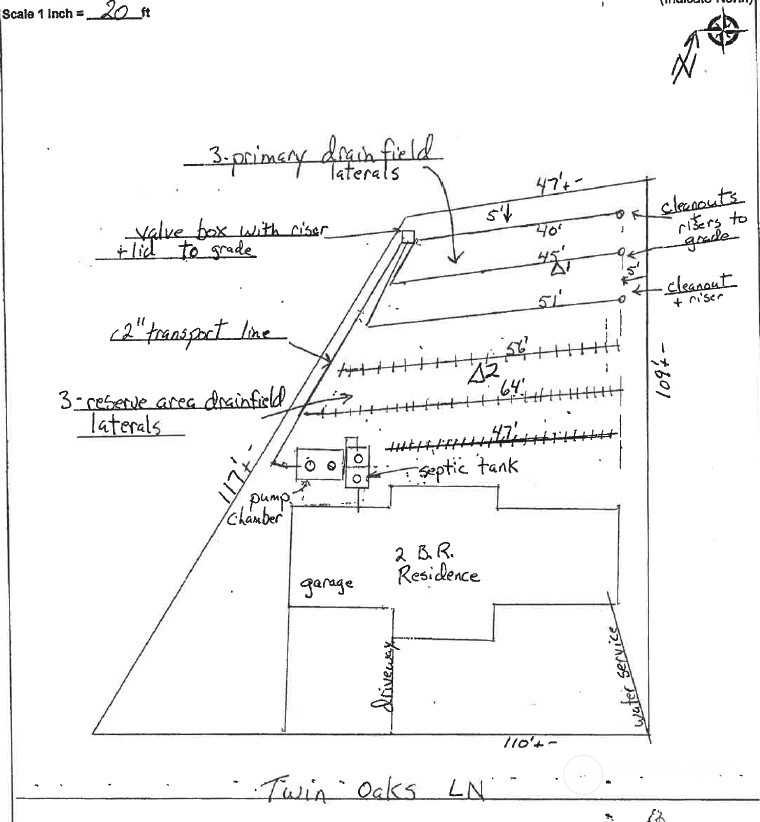 (Indicate North)
Scale 1 inch = 20 ft
N
3-primary drainfield
laterals
47'+-
5'
cleanouts
risers to
grade
valve box with riser
+ lid to grade
40'
45'
Δ1
5'
cleanout
+ riser
51'
2" transport line
56'
Δ2
109'+-
3-reserve area drainfield
laterals
64'
47'
117'+-
septic tank
pump
chamber
2 B.R.
Residence
garage
driveway
water service
110'+-
Twin Oaks LN